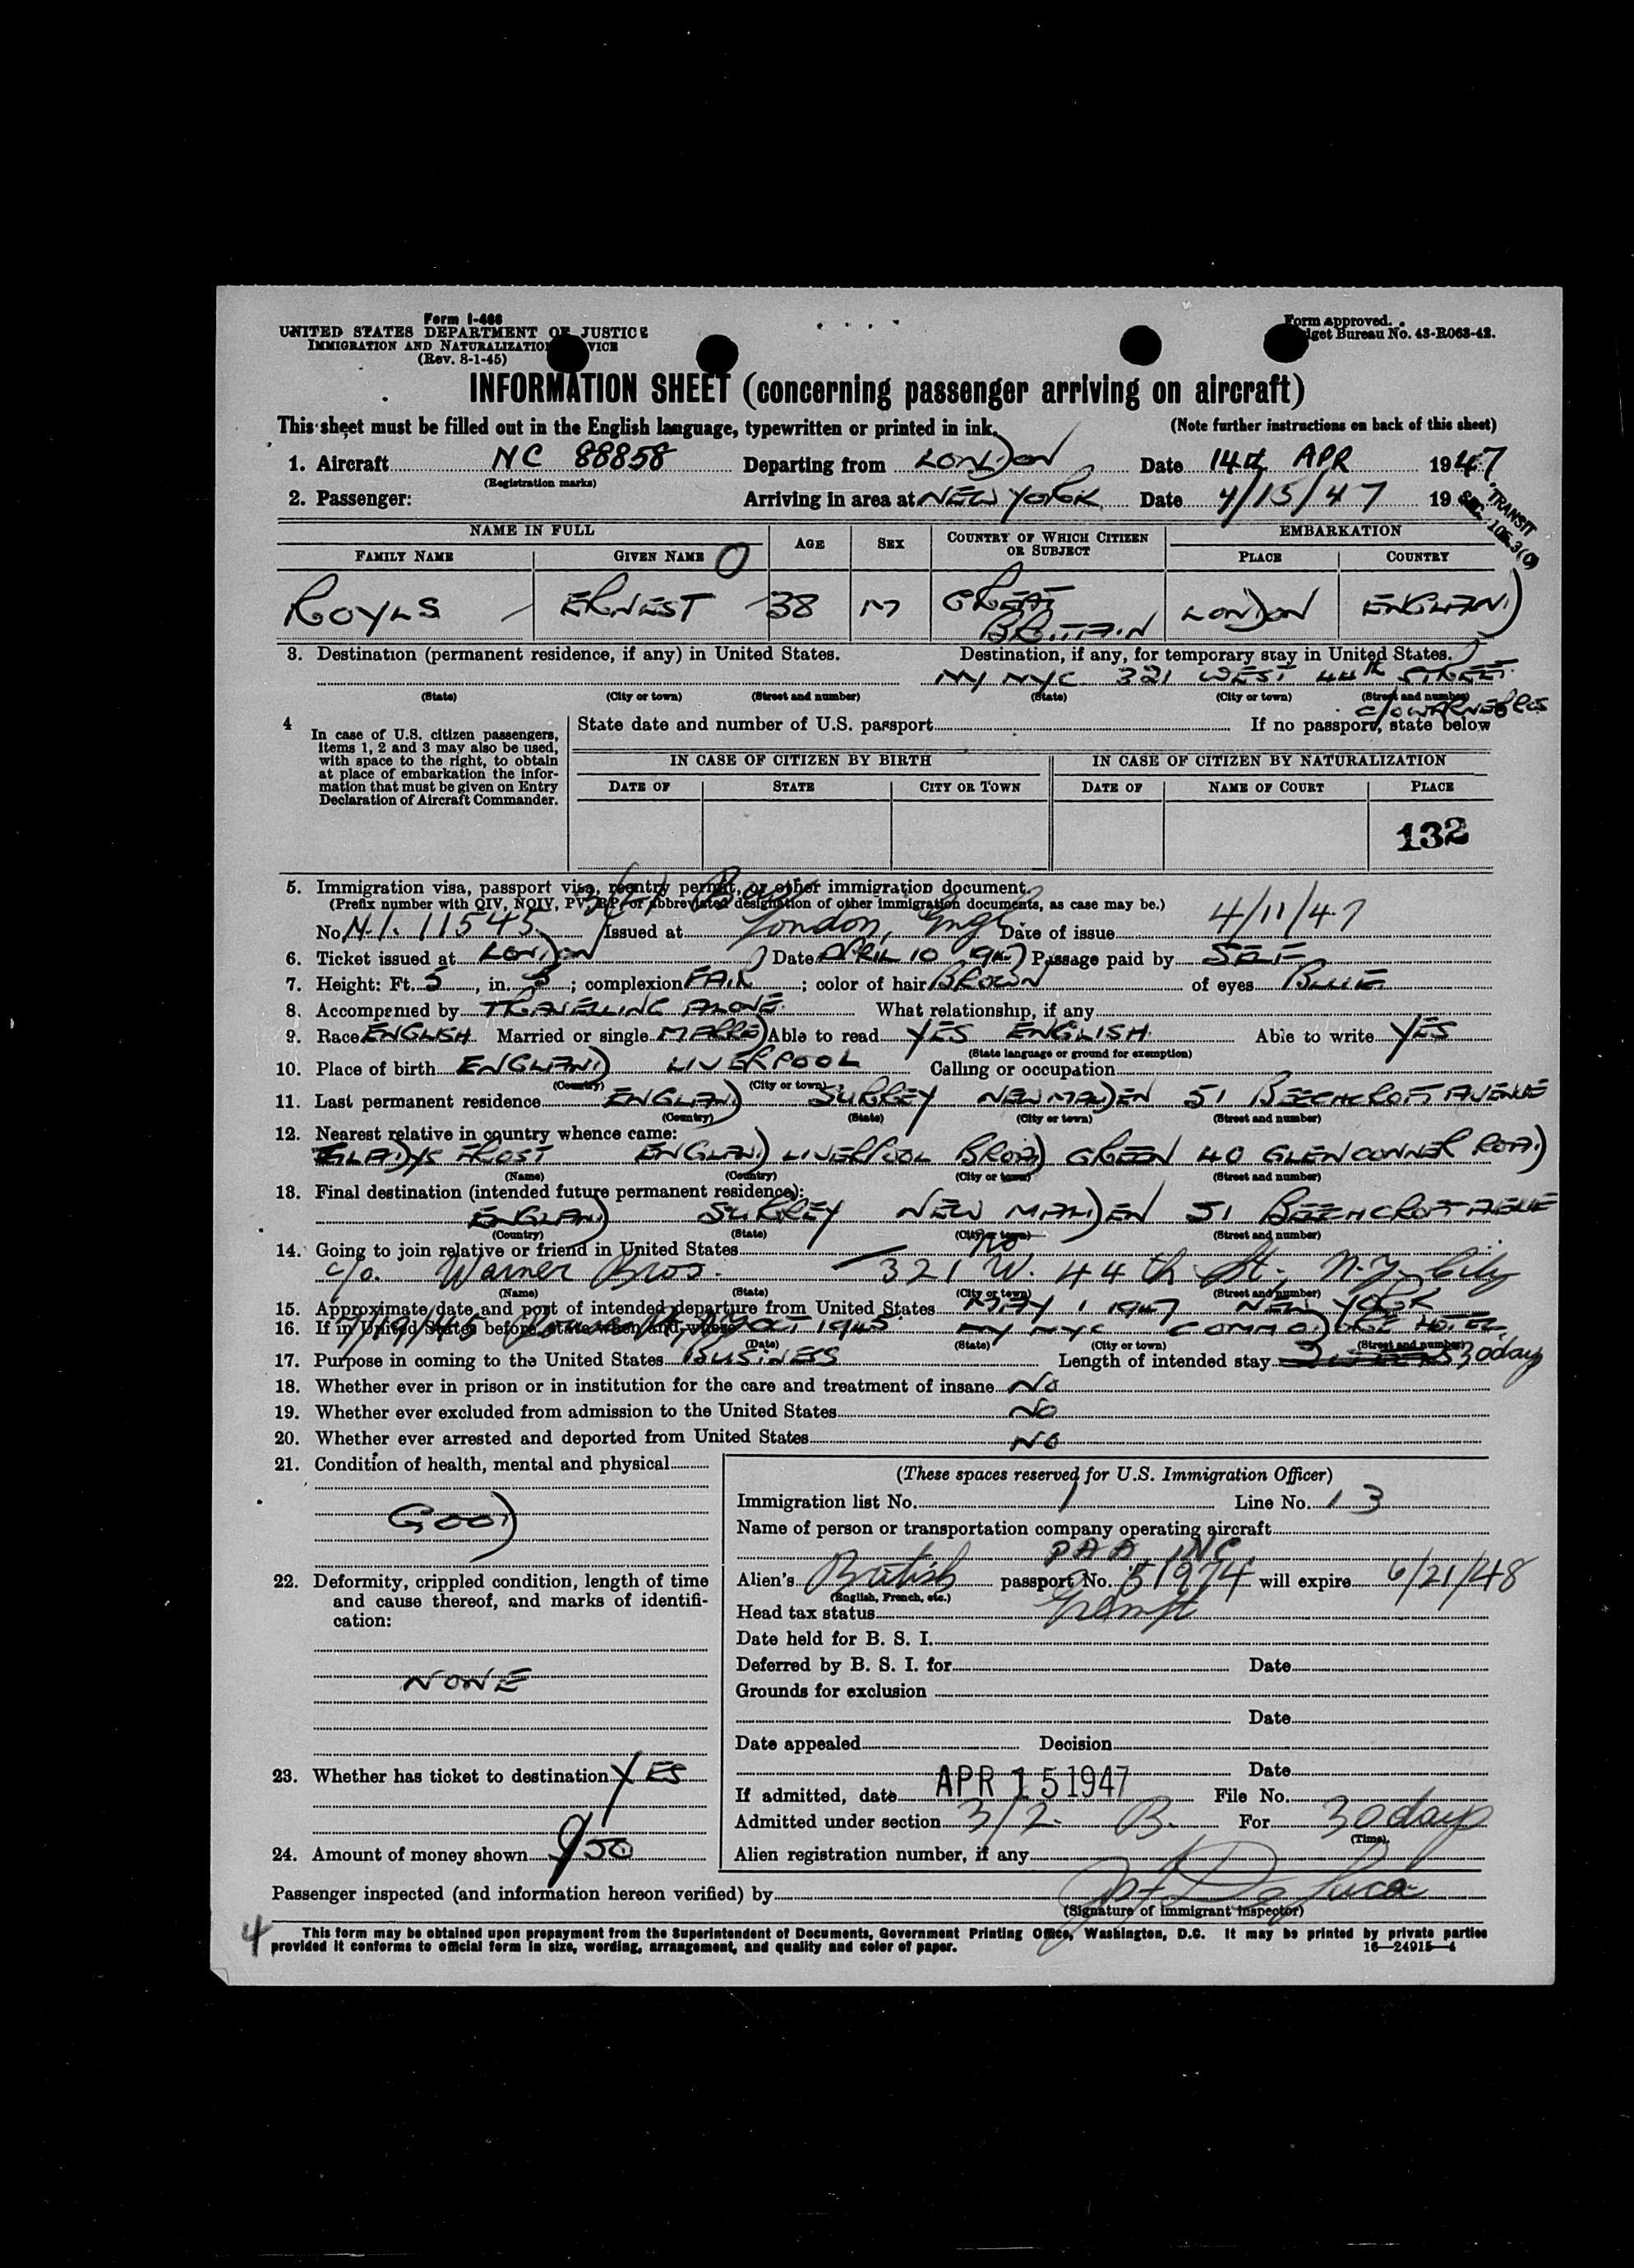 Form I-466
UNITED STATES DEPARTMENT OF JUSTICE
IMMIGRATION AND NATURALIZATION SERVICE
(Rev. 8-1-45)
Form approved.
Budget Bureau No. 43-R063-42.
INFORMATION SHEET (concerning passenger arriving on aircraft)
This sheet must be filled out in the English language, typewritten or printed in ink.
(Note further instructions on back of this sheet)
1. Aircraft NC 88858 Departing from LONDON Date 14th APR 1947
(Registration marks)
2. Passenger: Arriving in area at NEW YORK Date 4/15/47 19
TRANSIT
SEC. 105.3(c)
NAME IN FULL AGE SEX COUNTRY OF WHICH CITIZEN OR SUBJECT EMBARKATION
FAMILY NAME GIVEN NAME PLACE COUNTRY
ROYLS ERNEST 38 M GREAT BRITAIN LONDON ENGLAND
3. Destination (permanent residence, if any) in United States. Destination, if any, for temporary stay in United States.
NY NYC 321 WEST 44th STREET
(State) (City or town) (Street and number) (State) (City or town) (Street and number)
C/O WARNER BROS
4 In case of U.S. citizen passengers, items 1, 2 and 3 may also be used, with space to the right, to obtain at place of embarkation the information that must be given on Entry Declaration of Aircraft Commander.
State date and number of U.S. passport If no passport, state below
IN CASE OF CITIZEN BY BIRTH IN CASE OF CITIZEN BY NATURALIZATION
DATE OF STATE CITY OR TOWN DATE OF NAME OF COURT PLACE
132
5. Immigration visa, passport visa, reentry permit, or other immigration document.
(Prefix number with QIV, NQIV, PV, RP, or abbreviated designation of other immigration documents, as case may be.)
No. N.I. 11545 Issued at London, Engl Date of issue 4/11/47
6. Ticket issued at LONDON Date APRIL 10 1947 Passage paid by SELF
7. Height: Ft. 5, in. ; complexion FAIR; color of hair BROWN of eyes BLUE
8. Accompanied by TRAVELLING ALONE What relationship, if any
9. Race ENGLISH Married or single MARRD Able to read YES ENGLISH Able to write YES
(State language or ground for exemption)
10. Place of birth ENGLAND LIVERPOOL Calling or occupation
(Country) (City or town)
11. Last permanent residence ENGLAND SURREY NEW MALDEN 51 BEECHCROFT AVENUE
(Country) (State) (City or town) (Street and number)
12. Nearest relative in country whence came:
GLADYS FROST ENGLAND LIVERPOOL BROAD GREEN 40 GLENCONNER ROAD
(Name) (Country) (City or town) (Street and number)
13. Final destination (intended future permanent residence):
ENGLAND SURREY NEW MALDEN 51 BEECHCROFT AVENUE
(Country) (State) (City or town) (Street and number)
14. Going to join relative or friend in United States No
c/o. Warner Bros. 321 W. 44th St., N.Y. City
(Name) (State) (City or town) (Street and number)
15. Approximate date and port of intended departure from United States MAY 1 1947 NEW YORK
16. If in United States before, state when and where OCT 1945 NY NYC COMMODORE HOTEL
(Date) (State) (City or town) (Street and number)
17. Purpose in coming to the United States BUSINESS Length of intended stay 30 days
18. Whether ever in prison or in institution for the care and treatment of insane No
19. Whether ever excluded from admission to the United States No
20. Whether ever arrested and deported from United States No
21. Condition of health, mental and physical
GOOD
22. Deformity, crippled condition, length of time and cause thereof, and marks of identification:
NONE
23. Whether has ticket to destination YES
24. Amount of money shown $50
(These spaces reserved for U.S. Immigration Officer)
Immigration list No. 1 Line No. 13
Name of person or transportation company operating aircraft
PAA INC
Alien's British passport No. 51974 will expire 6/21/48
(English, French, etc.)
Head tax status Exempt
Date held for B. S. I.
Deferred by B. S. I. for Date
Grounds for exclusion
Date
Date appealed Decision
Date
If admitted, date APR 15 1947 File No.
Admitted under section 3/2 B. For 30 days
(Time)
Alien registration number, if any
Passenger inspected (and information hereon verified) by De Luca
(Signature of immigrant inspector)
4
This form may be obtained upon prepayment from the Superintendent of Documents, Government Printing Office, Washington, D.C. It may be printed by private parties
provided it conforms to official form in size, wording, arrangement, and quality and color of paper. 16—24915—4